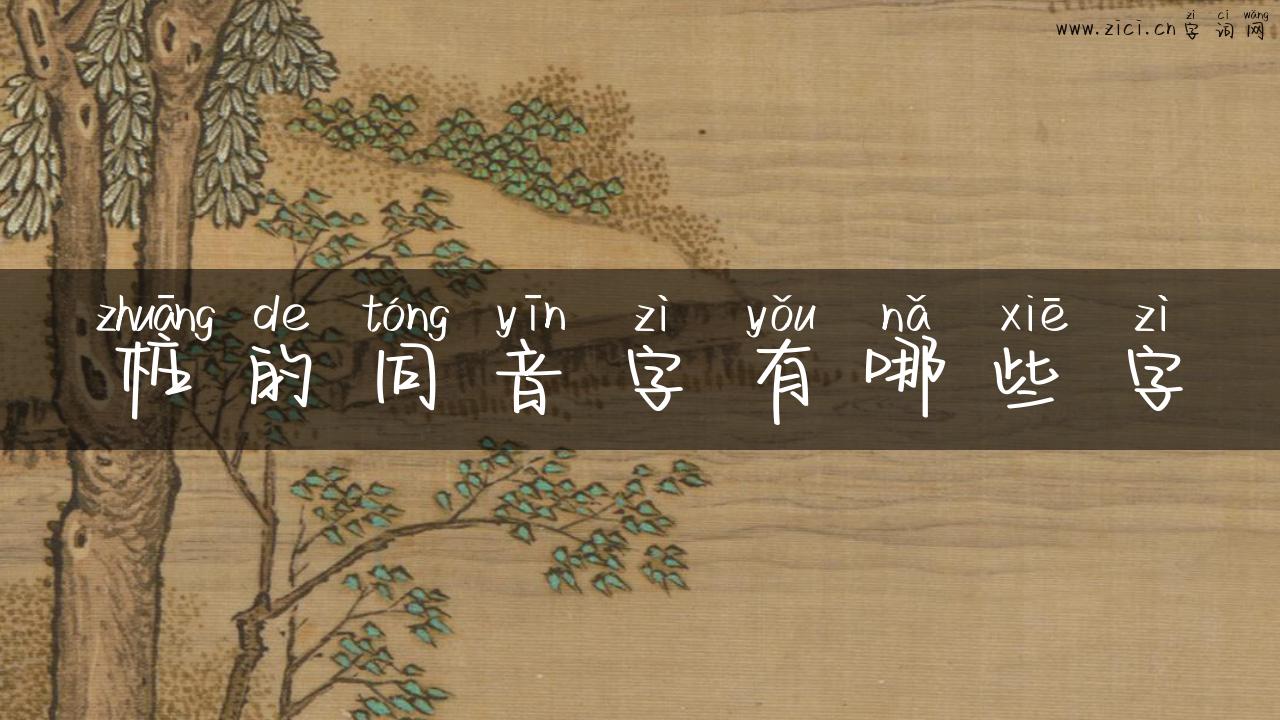 zì cí wǎng
www.zici.cn 字词网
zhuāng de tóng yīn zì yǒu nǎ xiē zì
桩的同音字有哪些字